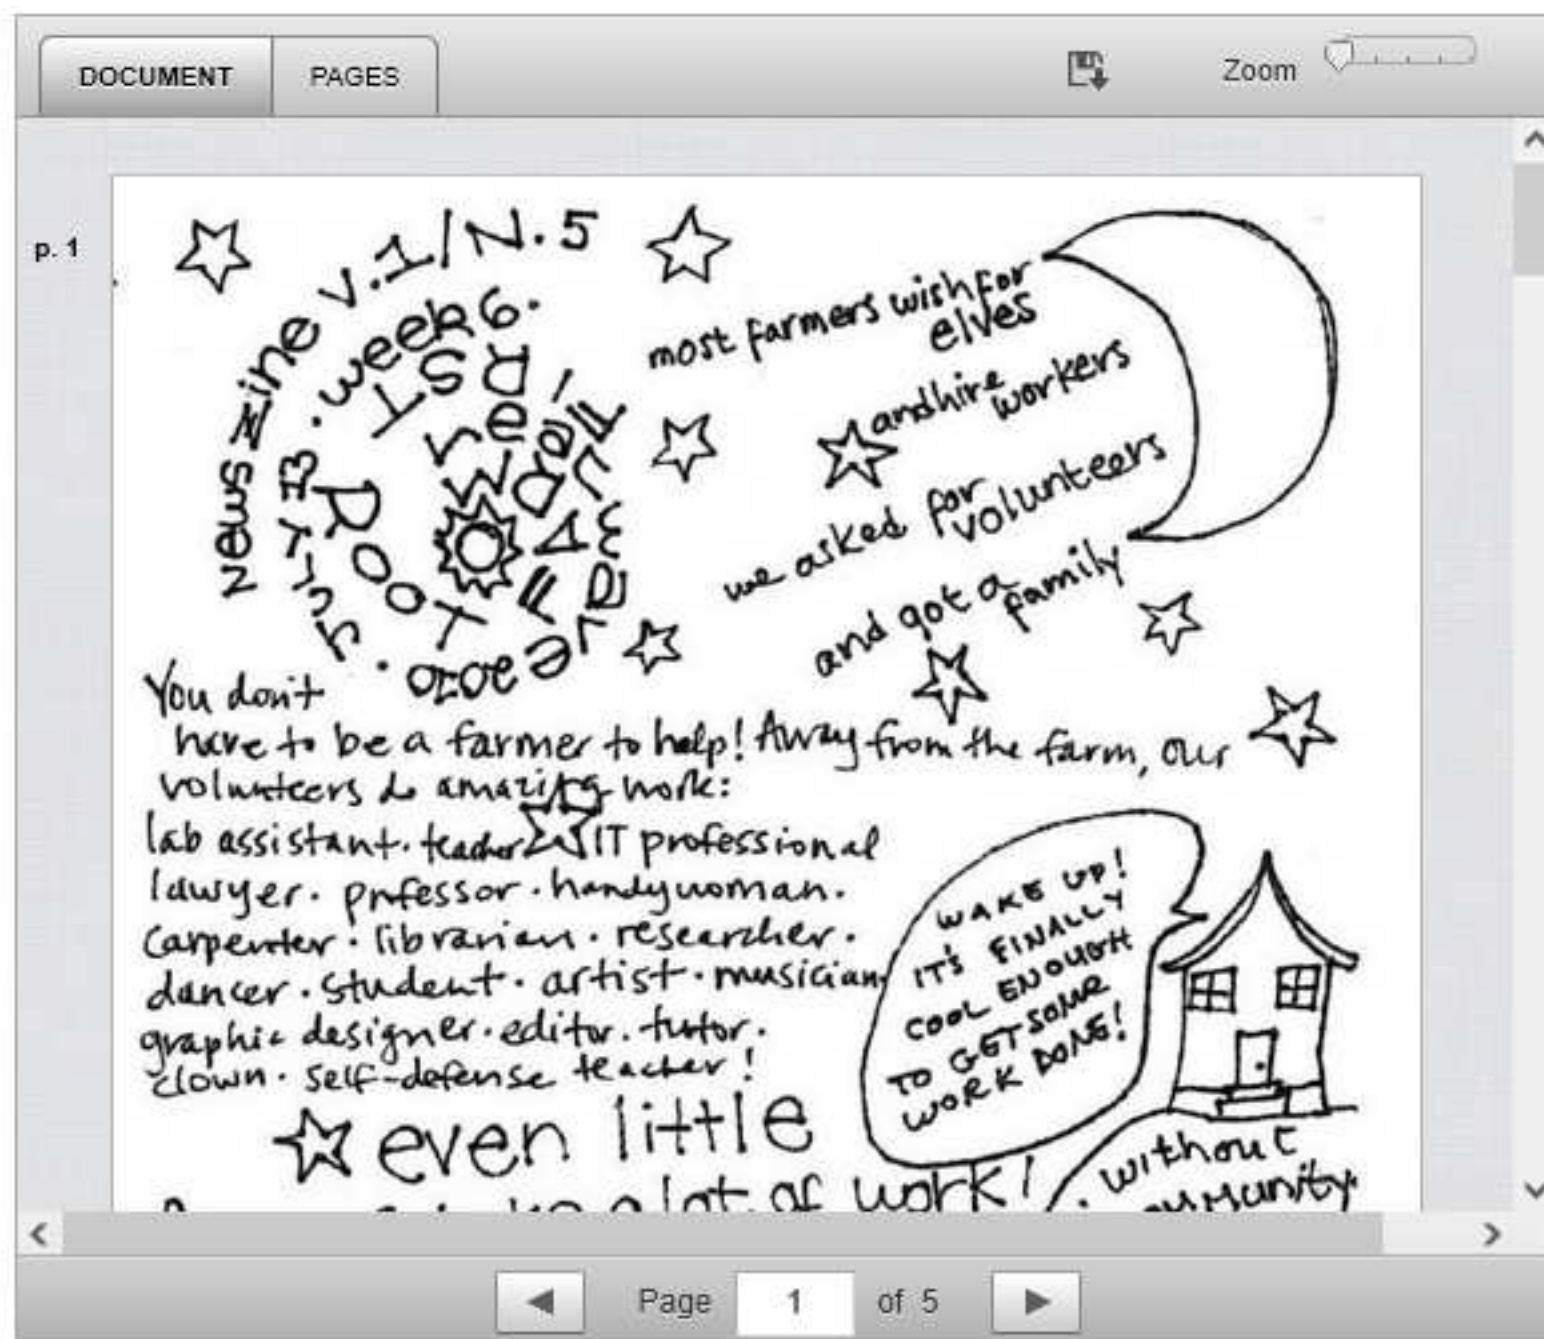 DOCUMENT PAGES Zoom
p. 1
newszine v.1/N.5
July 13. week 6.
ROOT
most farmers wish for
elves
and hire
workers
we asked for
volunteers
and got a
family
You don't
have to be a farmer to help! Away from the farm, our
volunteers do amazing work:
lab assistant. teacher IT professional
lawyer. professor. handywoman.
carpenter. librarian. researcher.
dancer. student. artist. musician
graphic designer. editor. tutor.
clown. self-defense teacher!
WAKE UP!
IT'S FINALLY
COOL ENOUGH
TO GET SOME
WORK DONE!
even little
a lot of work!
without
Page 1 of 5